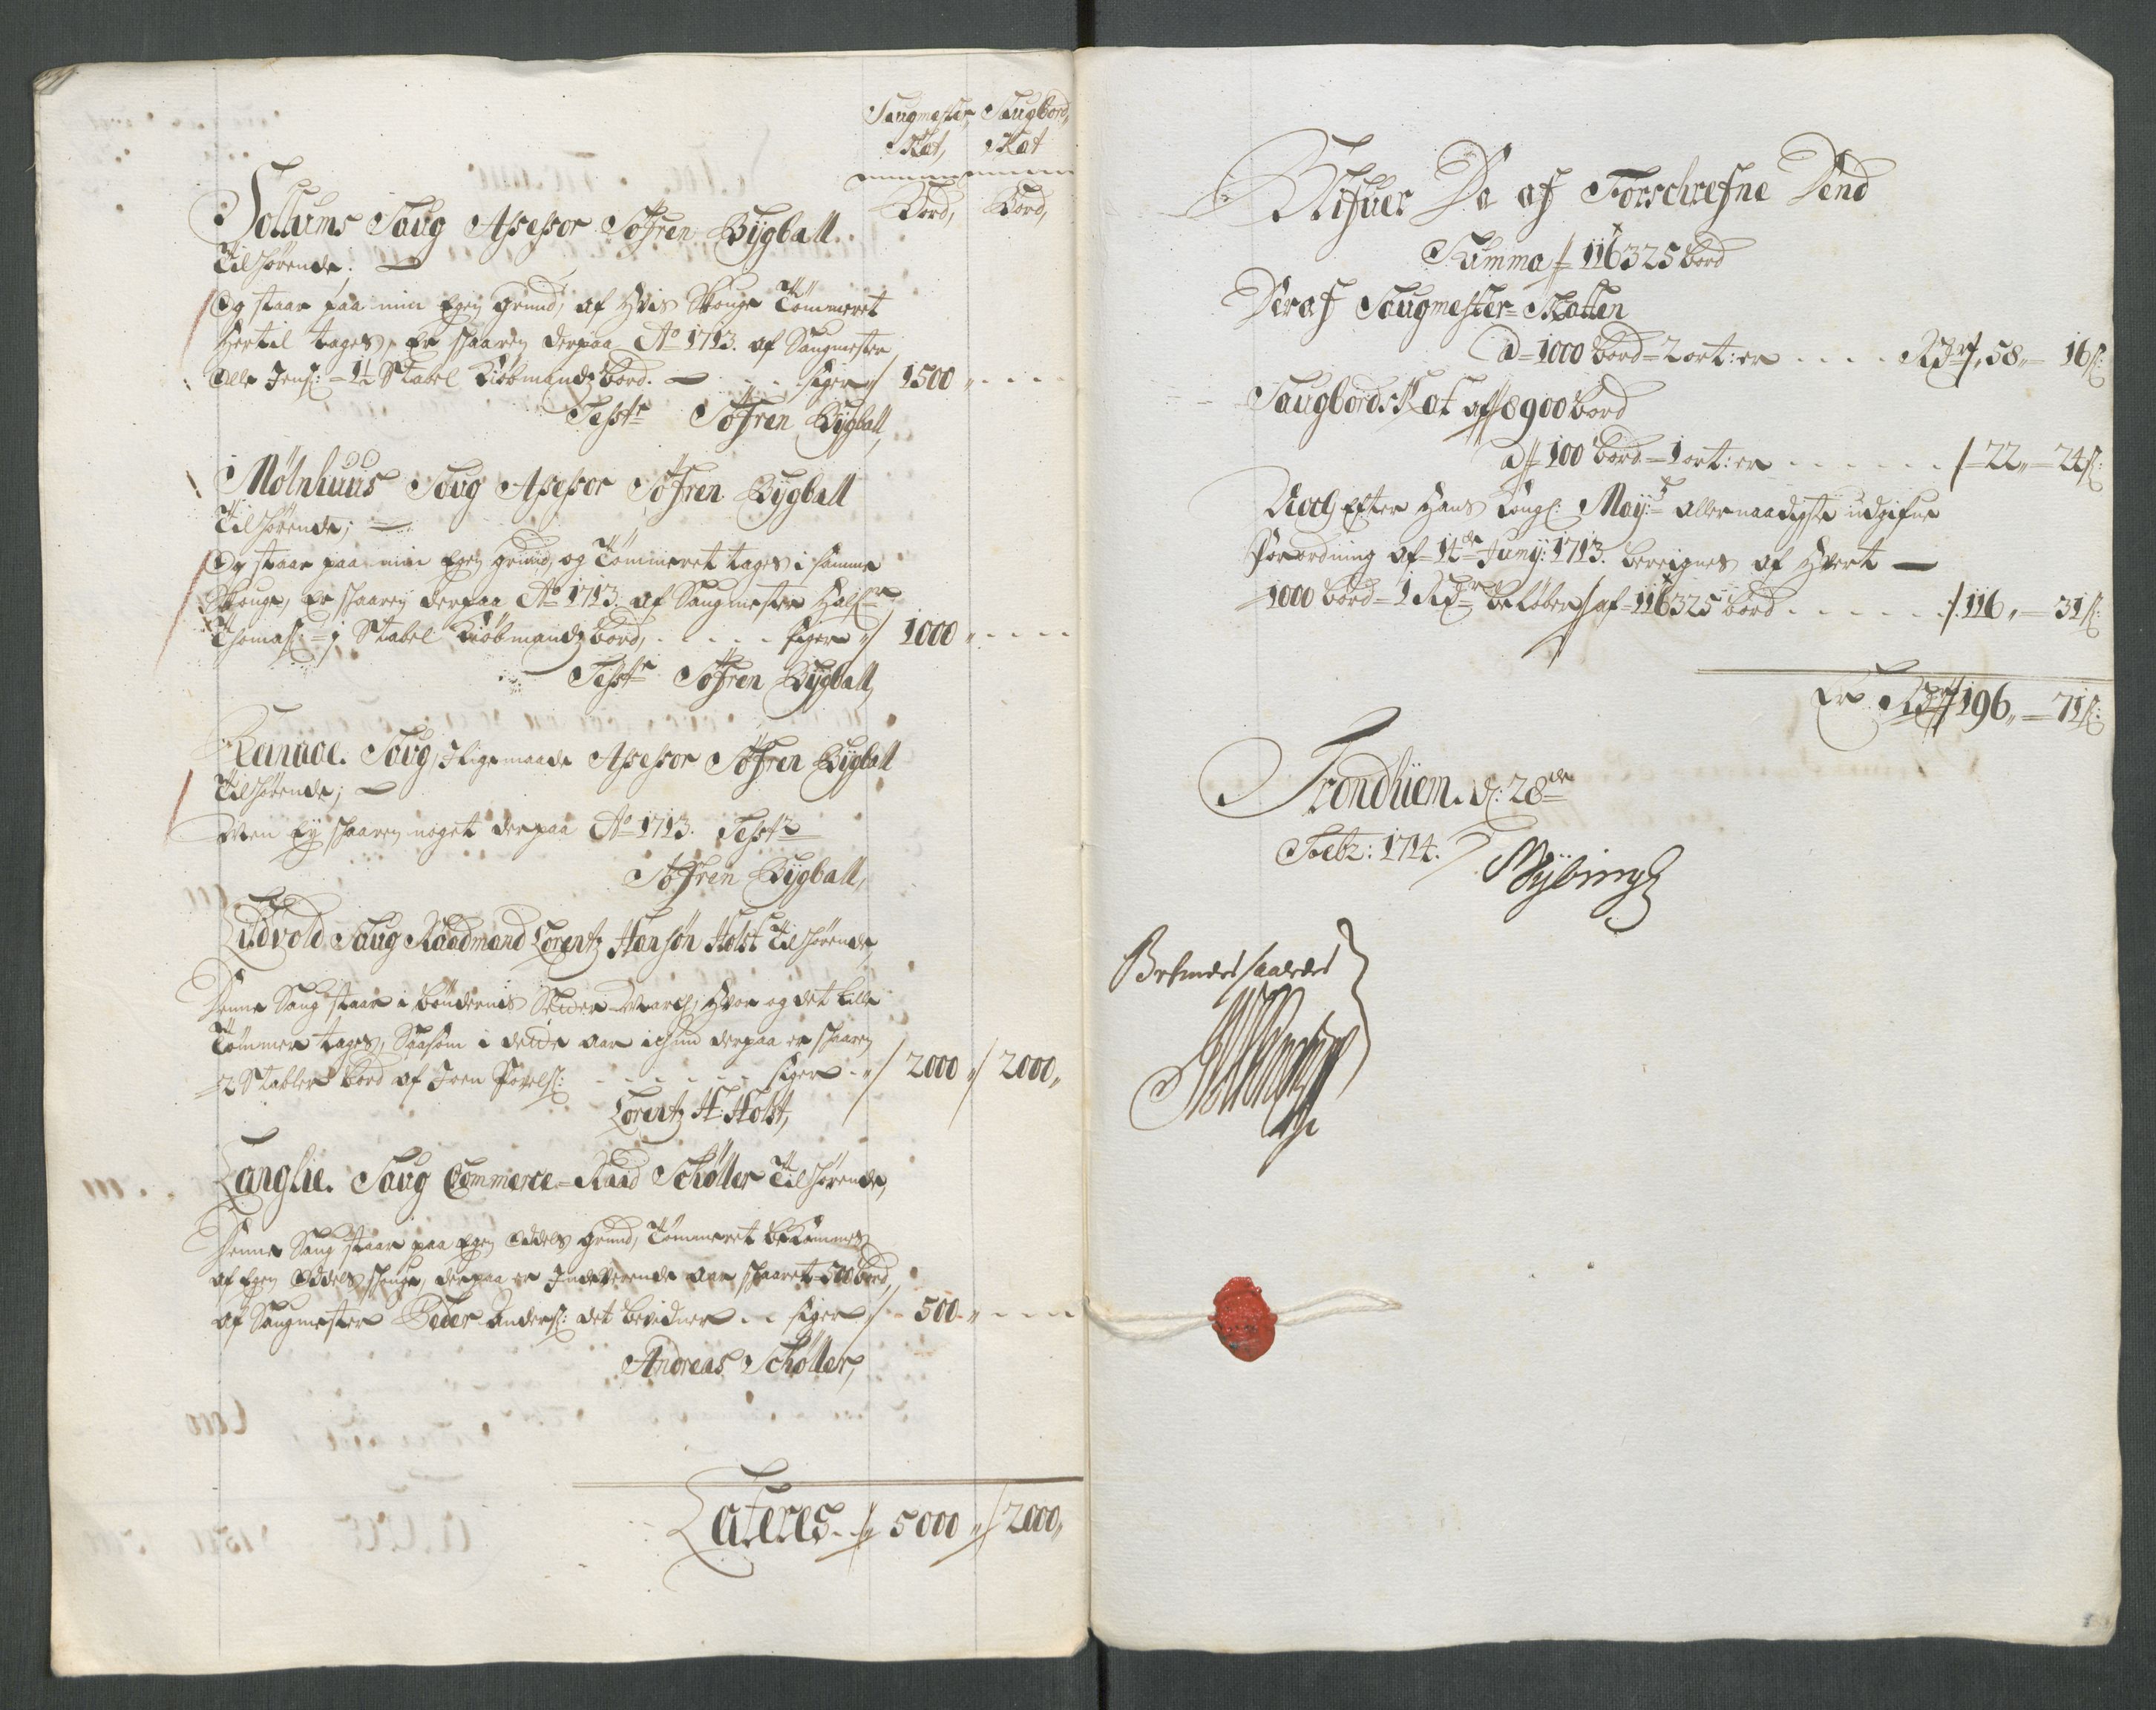 Saugmester Saugbord
Skat, Skat
Bord, Bord,
Sollums Saug Assessor Söfren Bÿgball
Tilhörende;
Og staar paa min Egen grund, af Hvis Skouge Tömmeret
Hertil tages, Er skaaren derpaa Aō 1713. af Saugmester
Olle Jenß: = 1½ Stabel Kiöbmandz bord. siger 1500
Testr Söfren Bÿgball,
Mölnhuus Saug Assessor Söfren Bÿgball
Tilhörende;
Og staar paa min Egen grund, og Tömmeret tages i samme
Skouge, Er skaaren derpaa Aō 1713. af Saugmester
Thomaß: = 1 Stabel Kiöbmandz bord, siger 1000
Testr Söfren Bÿgball,
Saug, Ligemaade Assessor Söfren Bÿgball
Tilhörende;
Men Eÿ skaaren noget derpaa Aō 1713. Testr
Söfren Bÿgball,
Saug Raadmand Lorentz Hansön Holst Tilhörende,
Denne Saug staar i böndernis March, Hvor og det lille
Tömmer tages, Saasom i dette aar ichun derpaa er skaaren
2 Stabler bord af Joen Povelß: siger 2000 2000,
Lorentz H: Holst,
Langlie. Saug Commerce-Raad Schøller Tilhörende,
Denne Saug staar paa Egen Oddels grund, Tömmeret bekommes
af Egen Oddels skouge, derpaa er Indeverende aar skaaret 500 bord,
af Saugmester Peder Anderß: det bevidner siger 500
Andreas Schøller,
Lateres 5000 2000,
Blifuer Da af Forschrefne Dend
Summa 116325 bord
Deraf Saugmester-Skatten
à 1000 bord = 2 ort: er Rdr 58 16ß:
Saugbordskat af 8900 bord
à 100 bord = 1 ort: er 22 24ß:
Noch Efter Hans Kongl: Maÿts: allernaadigste udgifne
Forordning af 14de Junÿ: 1713. bereignes af Hvert
1000 bord = 1 Rdr beløber af 116325 bord 116 31ß:
Er Rdr 196 71ß:
Trondhiem. d: 28de
Febr: 1714.